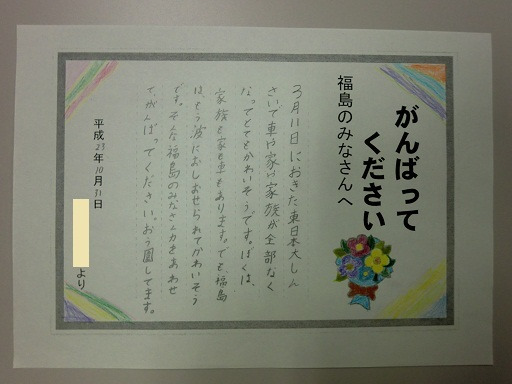 がんばって
ください
福島のみなさんへ
3月11日におきた東日本大しん
さいで車や家や家族が全部なく
なってとてもかわいそうです。ぼくは、
家族も家も車もあります。でも、福島
は、もう波におしよせられてかわいそう
です。そんな福島のみなさん力をあわせ
て、がんばってください。おう園してます。
平成23年10月31日
より